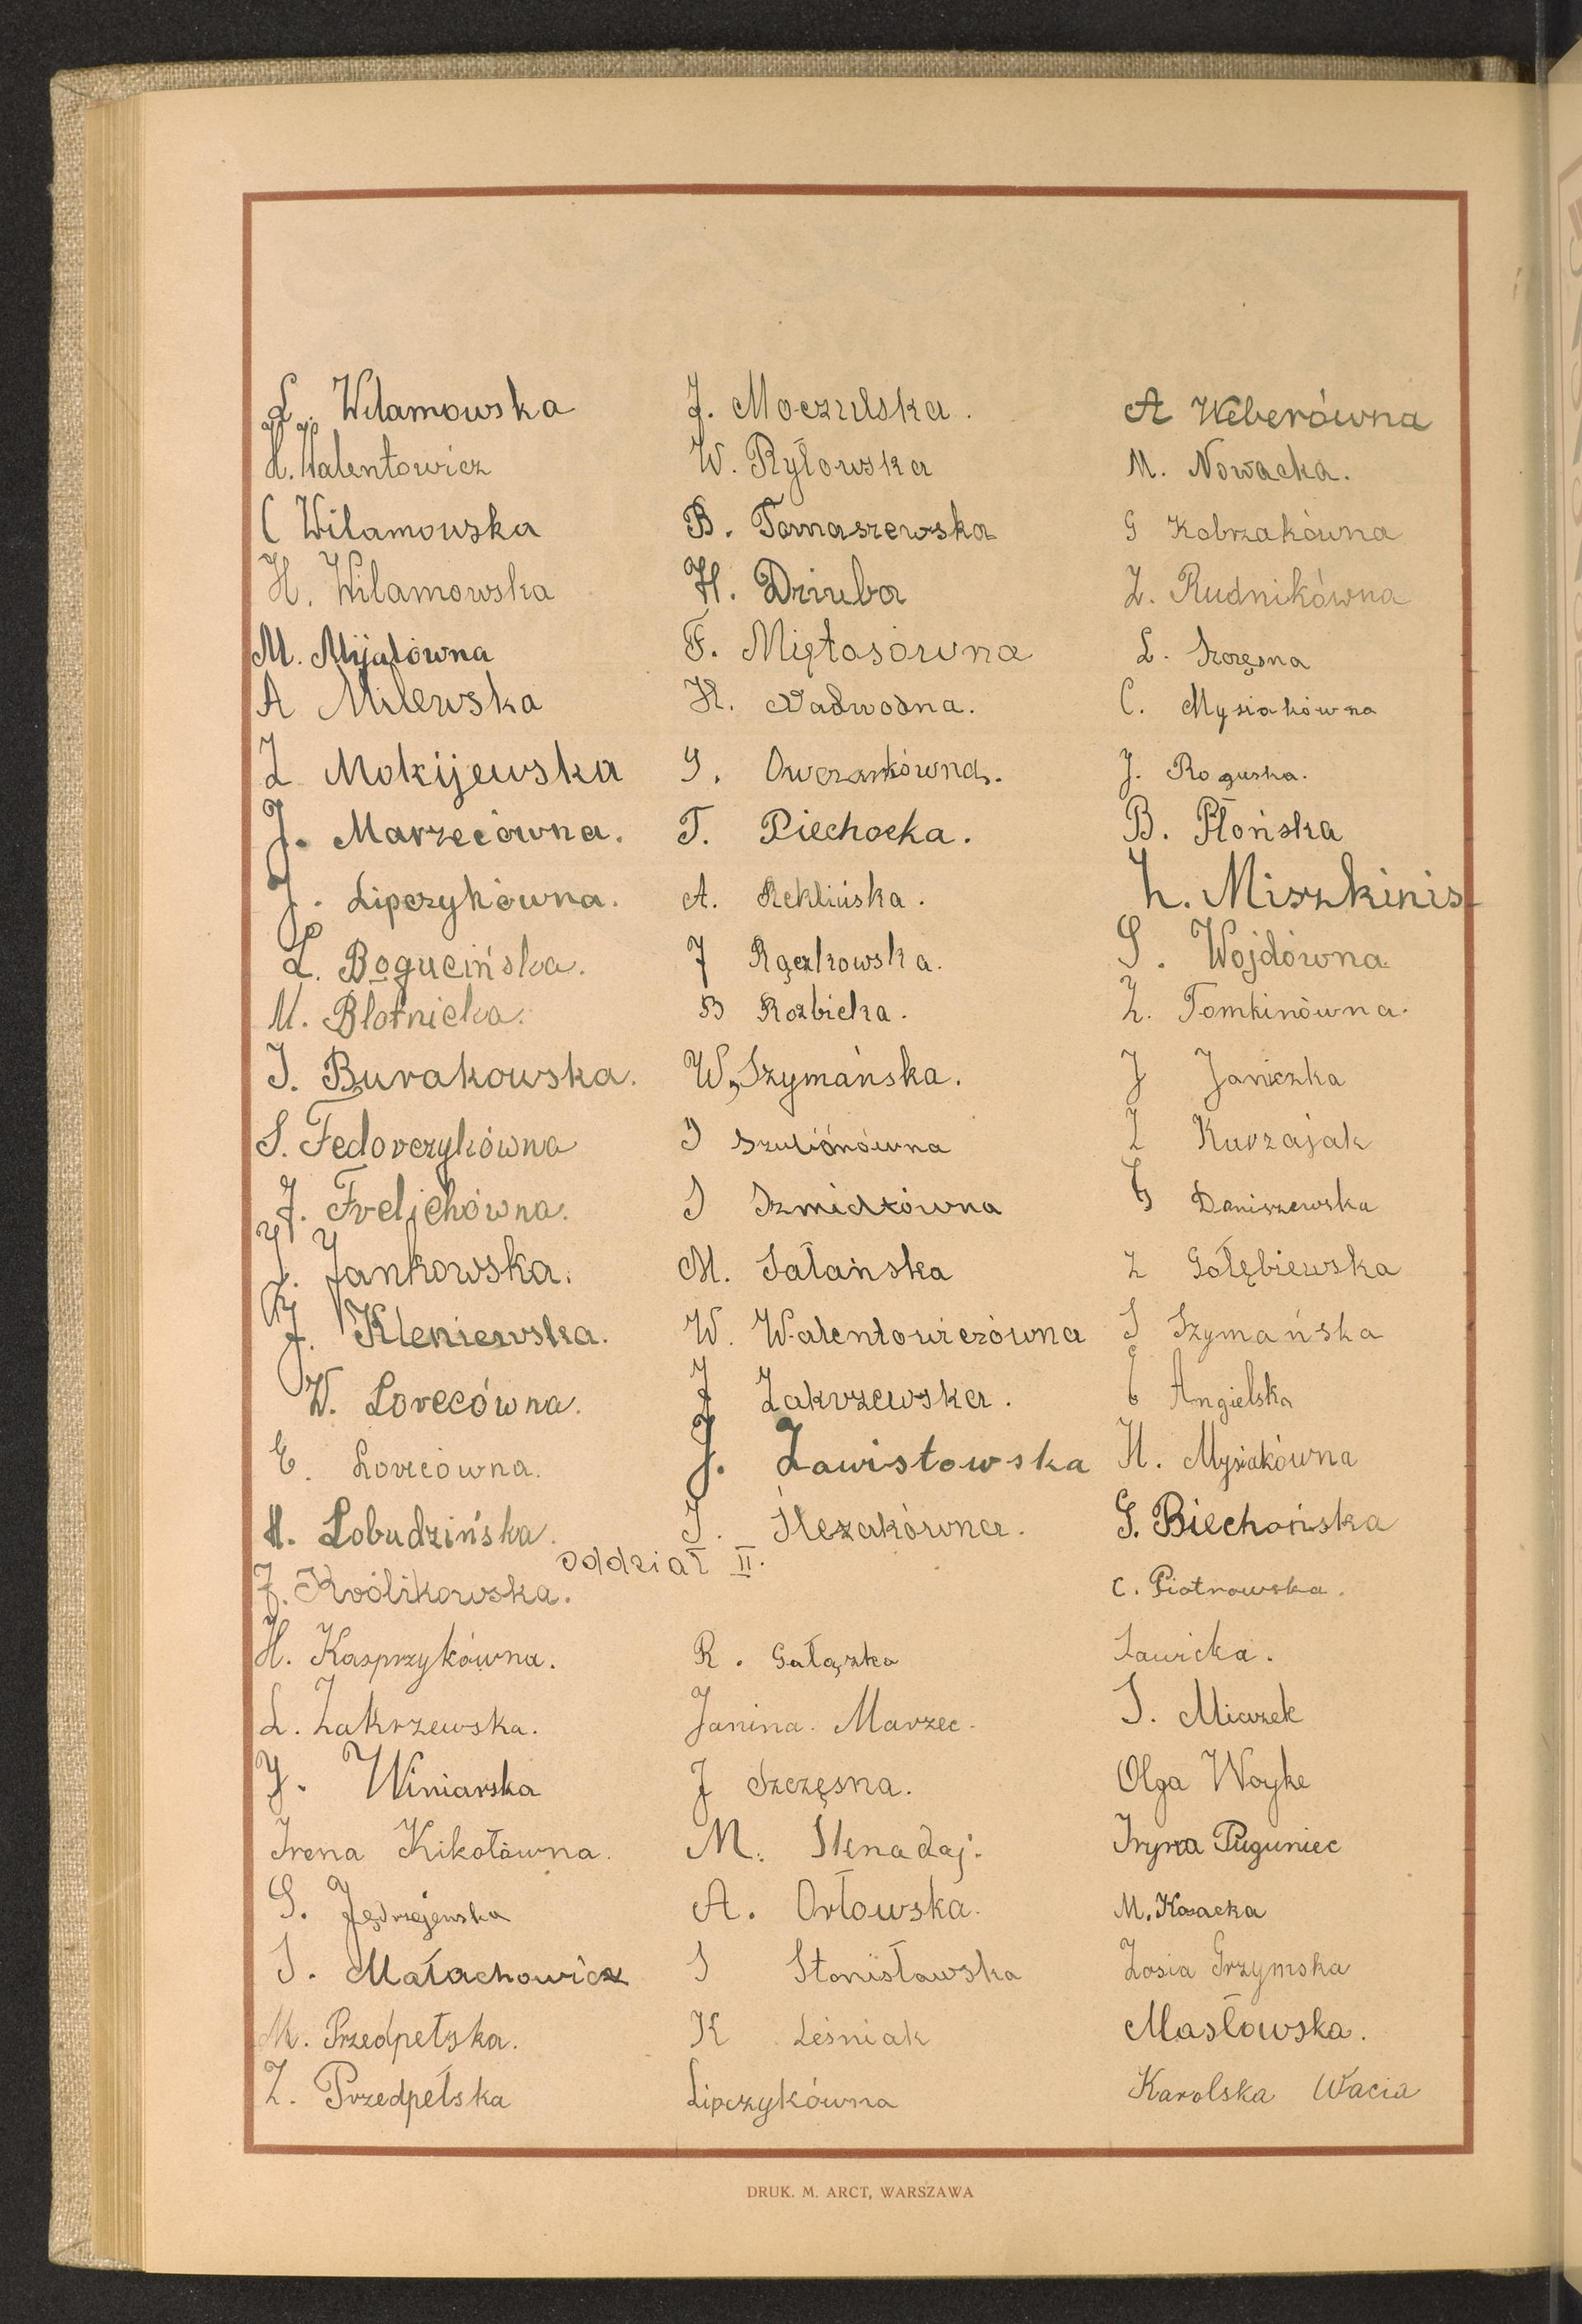 L. Wilamowska
H. Walentowicz
C Wilamowska
H. Wilamowska
M. Mijalówna
A Milewska
Z Mokijewska
J. Marzecówna.
J. Lipczykówna.
L. Bogucińska.
M. Błotnicka.
J. Burakowska.
S. Fedorczykówna
J. Frelichówna.
J. Jankowska.
J. Kleniewska.
W. Lorecówna.
E. Lorecówna.
H. Łobudzińska.
J. Królikowska.
H. Kasprzykówna.
L. Zakrzewska.
J. Winiarska
Irena Kikołówna.
S. Jędrzejewska
S. Małachowicz
M. Przedpełska.
Z. Przedpełska
J. Moczulska.
W. Ryłowska
B. Tomaszewska
H. Dziuba
F. Miętosówna
H. Nadwodna.
G. Owczarkówna.
T. Piechocka.
A. Reklińska.
J Rączkowska.
B Rozbicka.
W. Szymańska.
J Szulionówna
S Szmidtówna
M. Sałańska
W. Walentowiczówna
J Zakrzewska.
J. Zawistowska
J. Ślezakówna.
Oddział II.
R. Gałązka
Janina. Marzec.
J Szczęsna.
M. Sknadaj.
A. Orłowska.
S Stanisławska
K Leśniak
Lipczykówna
A Weberówna
M. Nowacka.
G Kobrzakówna
Z. Rudnikówna
L. Szczęsna
C. Mysiakówna
J. Roguska.
B. Płońska
H. Miszkinis
S. Wojdówna
Z. Tomkinówna.
J Janiczka
Z Kurzajak
G Daniszewska
Z Gołębiewska
S Szymańska
G Angielska
H. Mysiakówna
G. Biechońska
C. Piotrowska.
Zawicka.
S. Miazek
Olga Woyke
Iryna Puguniec
M. Kozacka
Zosia Grzymska
Masłowska.
Karolska Wacia
DRUK. M. ARCT, WARSZAWA